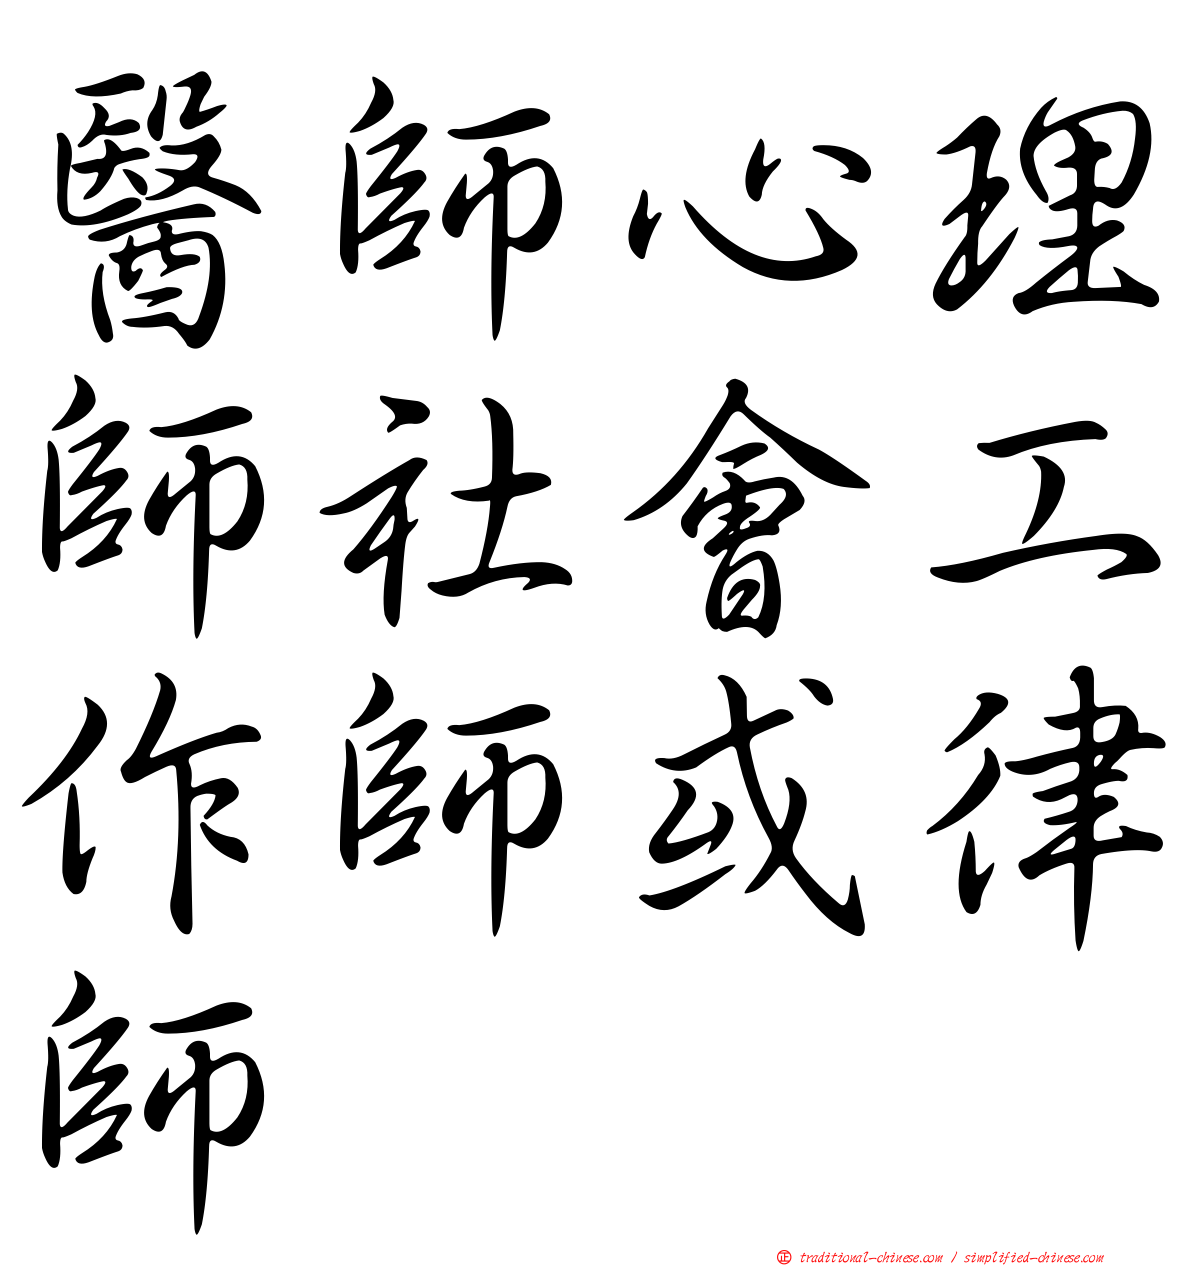 醫師心理
師社會工
作師或律
師
㊣ traditional-chinese.com / simplified-chinese.com